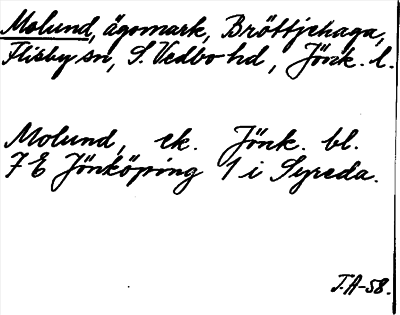 Molund, ägomark, Bröttjehaga,
Flisby sn, S. Vedbo hd, Jönk. l.
Molund, ek. Jönk. bl.
7 E Jönköping 1 i Syreda.
J.A-58.